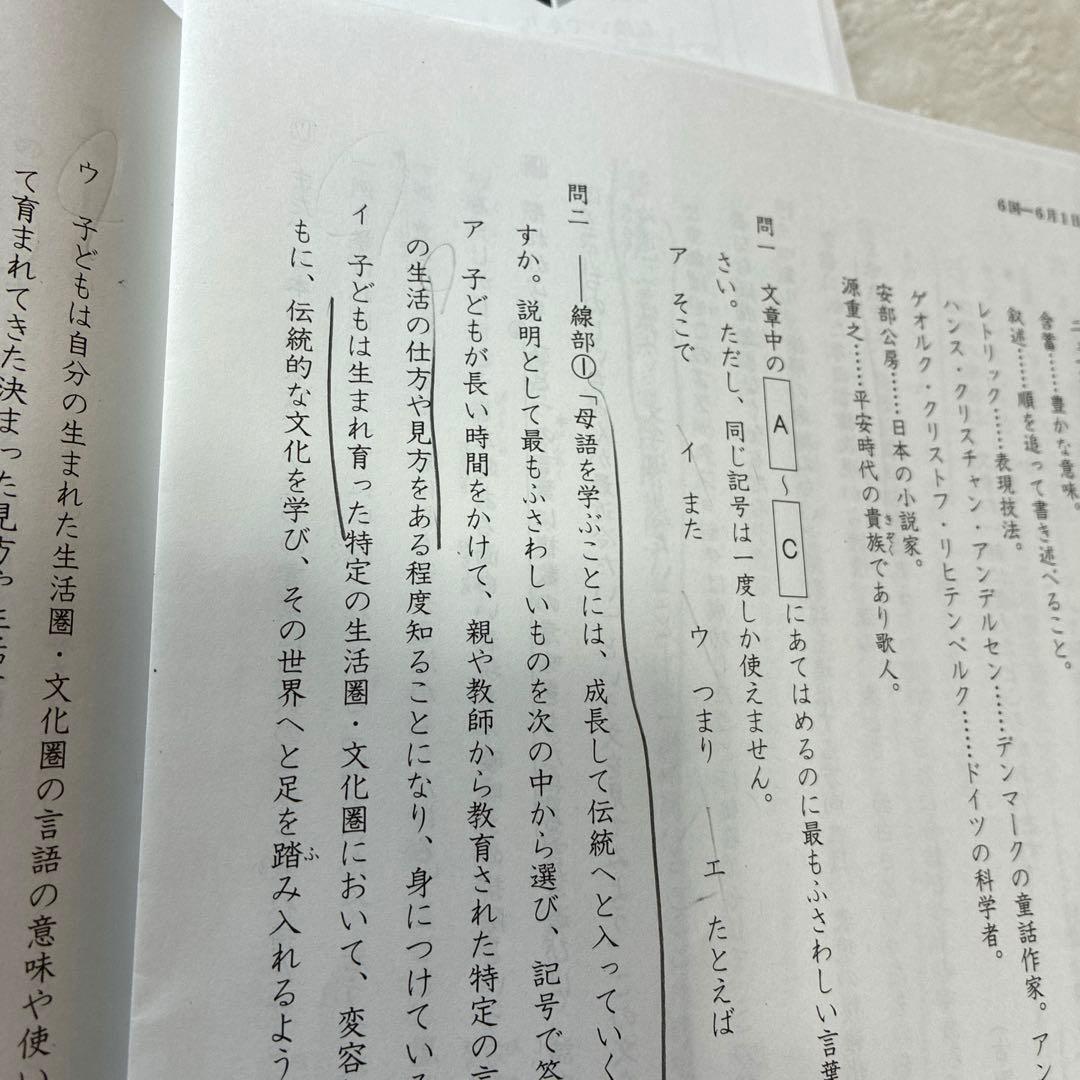 6国―6月1日
含蓄……豊かな意味。
叙述……順を追って書き述べること。
レトリック……表現技法。
ハンス・クリスチャン・アンデルセン……デンマークの童話作家。アン
ゲオルク・クリストフ・リヒテンベルク……ドイツの科学者。
安部公房……日本の小説家。
源重之……平安時代の貴族であり歌人。
きぞく
問一 文章中の A ～ C にあてはめるのに最もふさわしい言葉
さい。ただし、同じ記号は一度しか使えません。
ア そこで イ また ウ つまり エ たとえば
問二 ――線部①「母語を学ぶことには、成長して伝統へと入っていく
すか。説明として最もふさわしいものを次の中から選び、記号で答
ア 子どもが長い時間をかけて、親や教師から教育された特定の言
の生活の仕方や見方をある程度知ることになり、身につけている
イ 子どもは生まれ育った特定の生活圏・文化圏において、変容
もに、伝統的な文化を学び、その世界へと足を踏み入れるよう
ふ
ウ 子どもは自分の生まれた生活圏・文化圏の言語の意味や使い
て育まれてきた決まった見方や